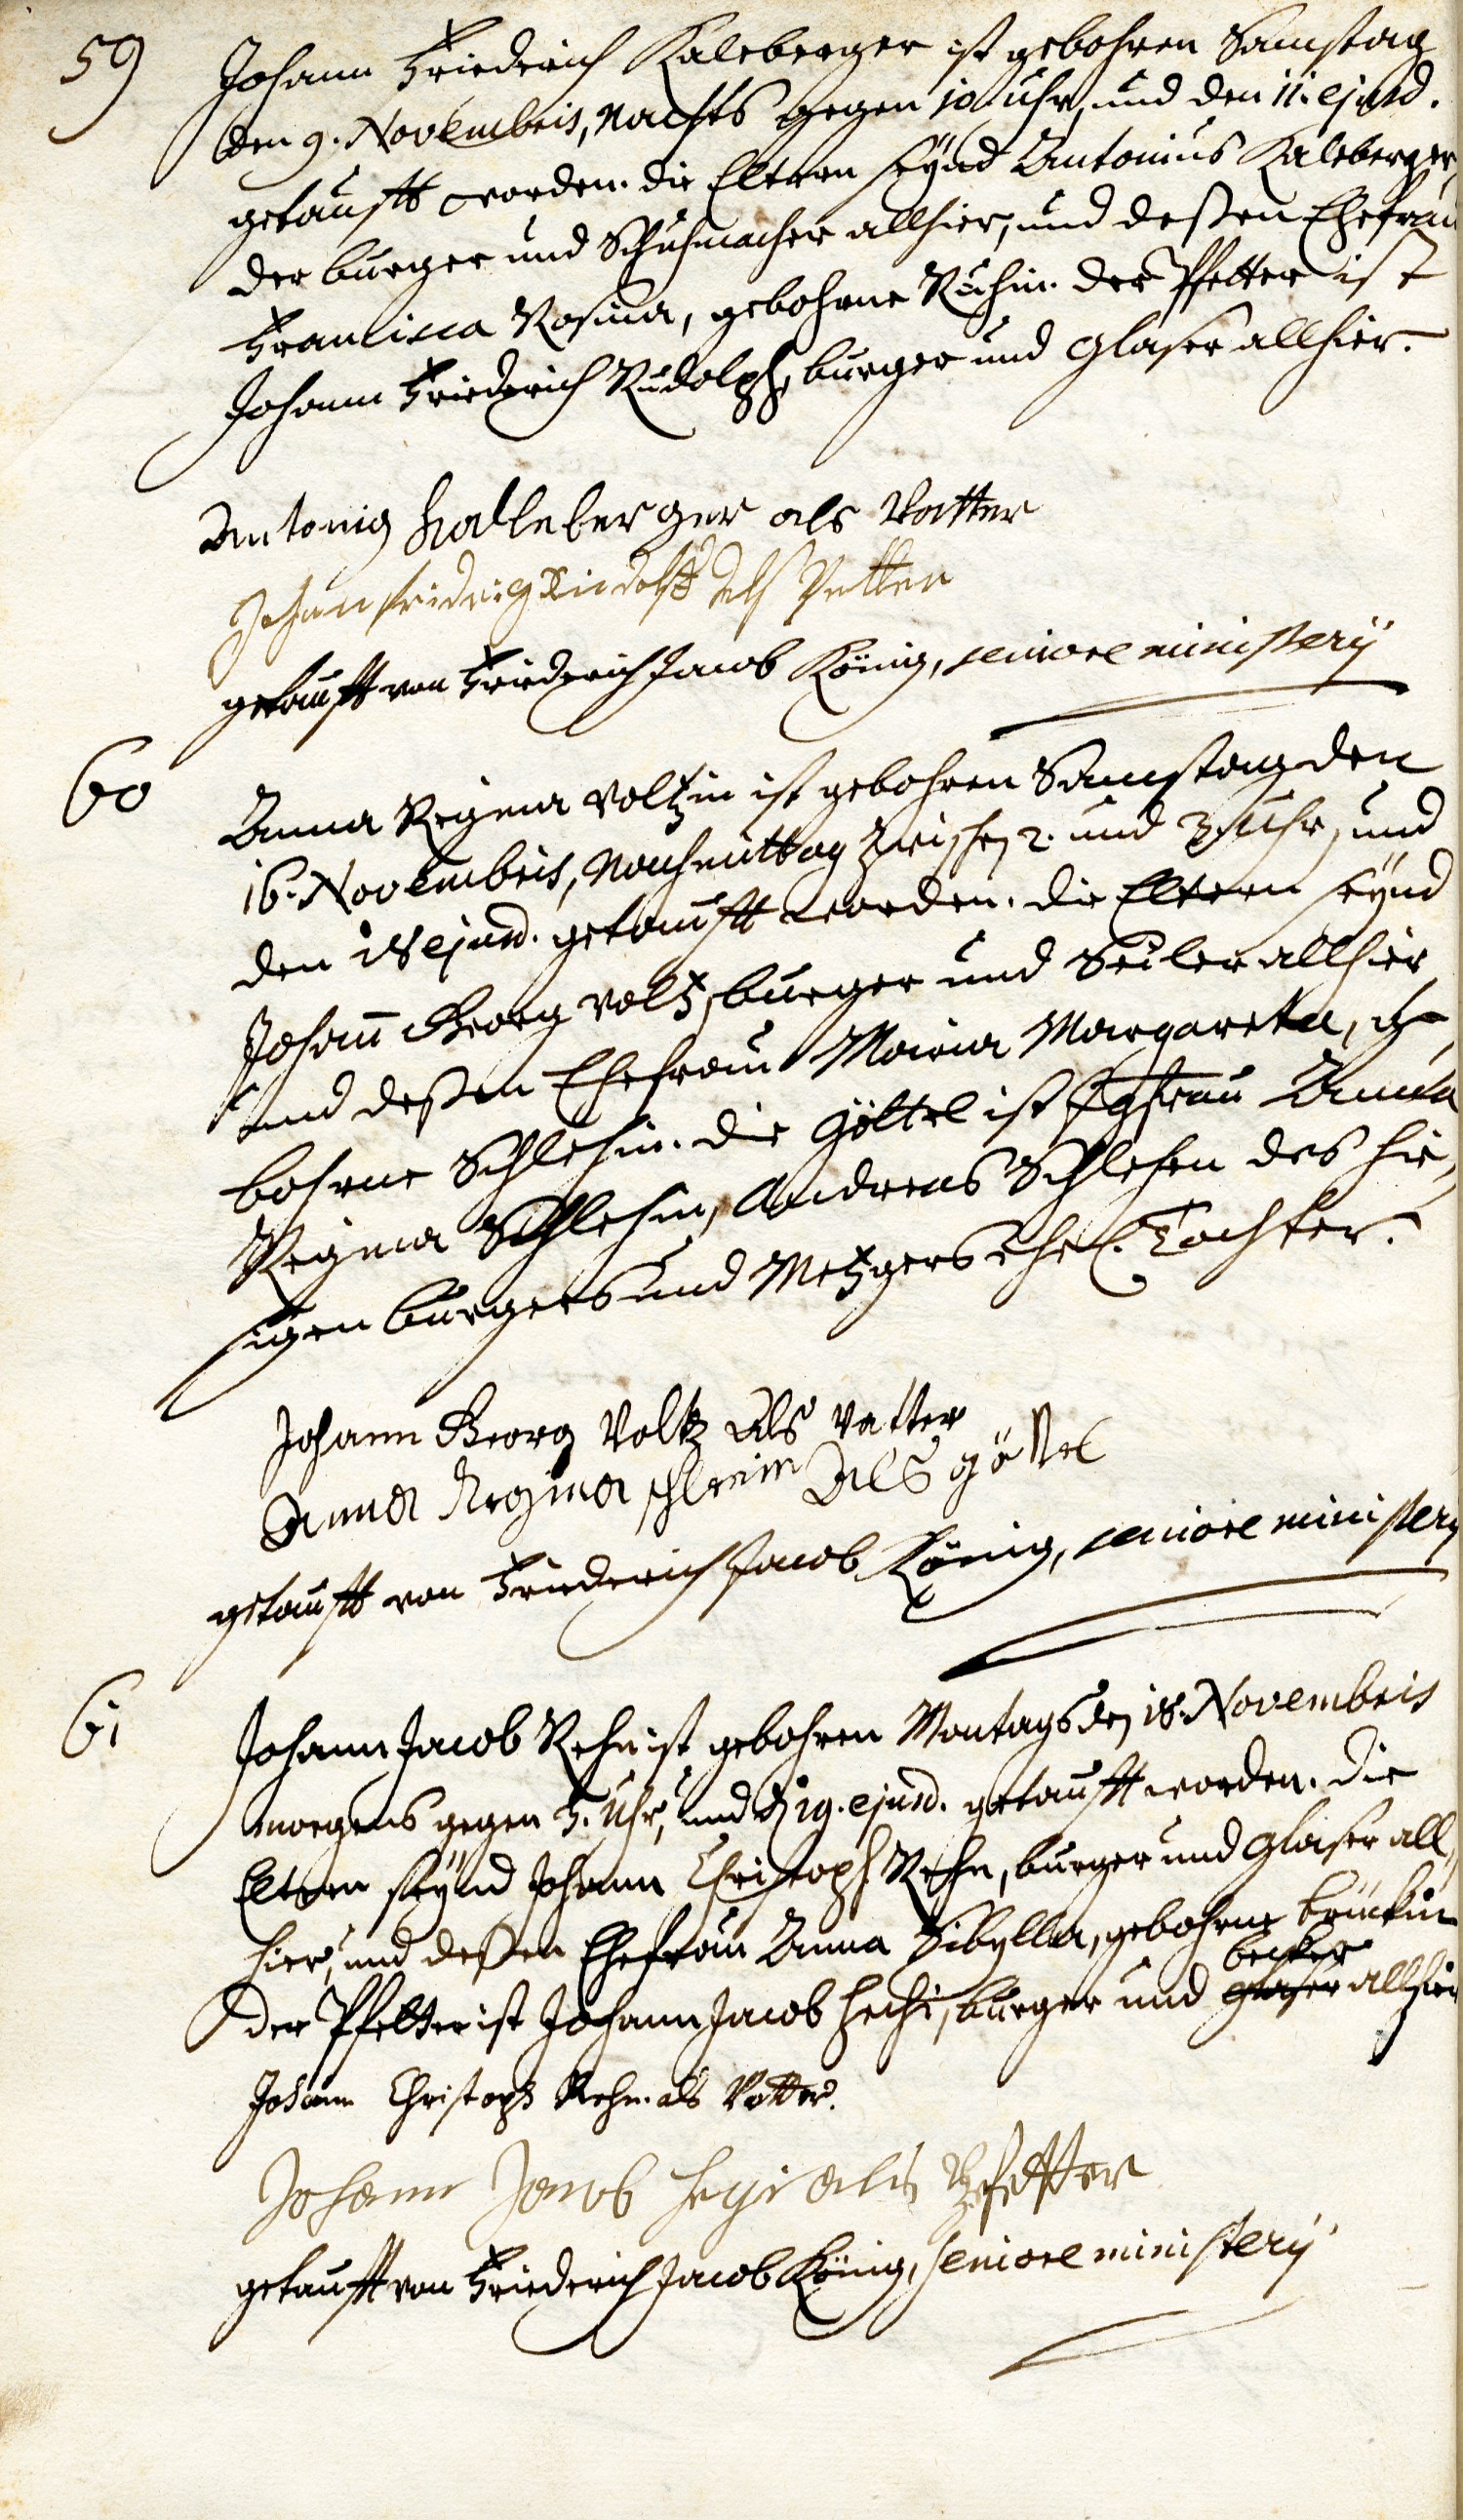 59
Johann Friederich Kaleberger ist gebohren Samstag
den 9. Novembris, Nachts gegen 10 Uhr, und den 11. ejusd.
getaufft worden. die Eltern seynd Antonius Kaleberger,
der burger und Schuhmacher allhier, und deßen Ehefrau
Francisca Rosina, gebohrne Ruhin. der Pfetter ist
Johann Friederich Rudolph, burger und Glaser allhier.
Antonig Kalleberger als Vatter
Johan fridrig Rudolff als Petter
getaufft von Friederich Jacob König, seniore ministerij
60
Anna Regina Voltzin ist gebohren Samstag den
16. Novembris, Nachmittag zwischen 2. und 3 Uhr, und
den 18 ejusd. getaufft worden. die Eltern seynd
Johann Georg Voltz, burger und Seiler allhier,
und deßen Ehefrau Maria Margareta, ge-
bohrne Schlehin. die Göttel ist Jgfrau Anna
Regina Schlehin, Andreas Schlehen des hie-
sigen burgers und Metzgers ehel. Tochter.
Johann Georg Voltz Als Vatter
Anna Regina schleinin Als göttel
getaufft von Friederich Jacob König, seniore ministerij
61
Johann Jacob Rehn ist gebohren Montags den 18. Novembris
morgens gegen 3. Uhr, und den 19. ejusd. getaufft worden. die
Eltern seynd Johann Christoph Rehn, burger und Glaser all-
hier, und deßen Ehefrau Anna Sibylla, gebohrne Brückin
becker
der Pfetter ist Johann Jacob Hechi, burger und Glaser allhier
Johann Christoph Rehn als Vatter.
Johann Jacob Hegi als Pfetter
getaufft von Friederich Jacob König, seniore ministerij